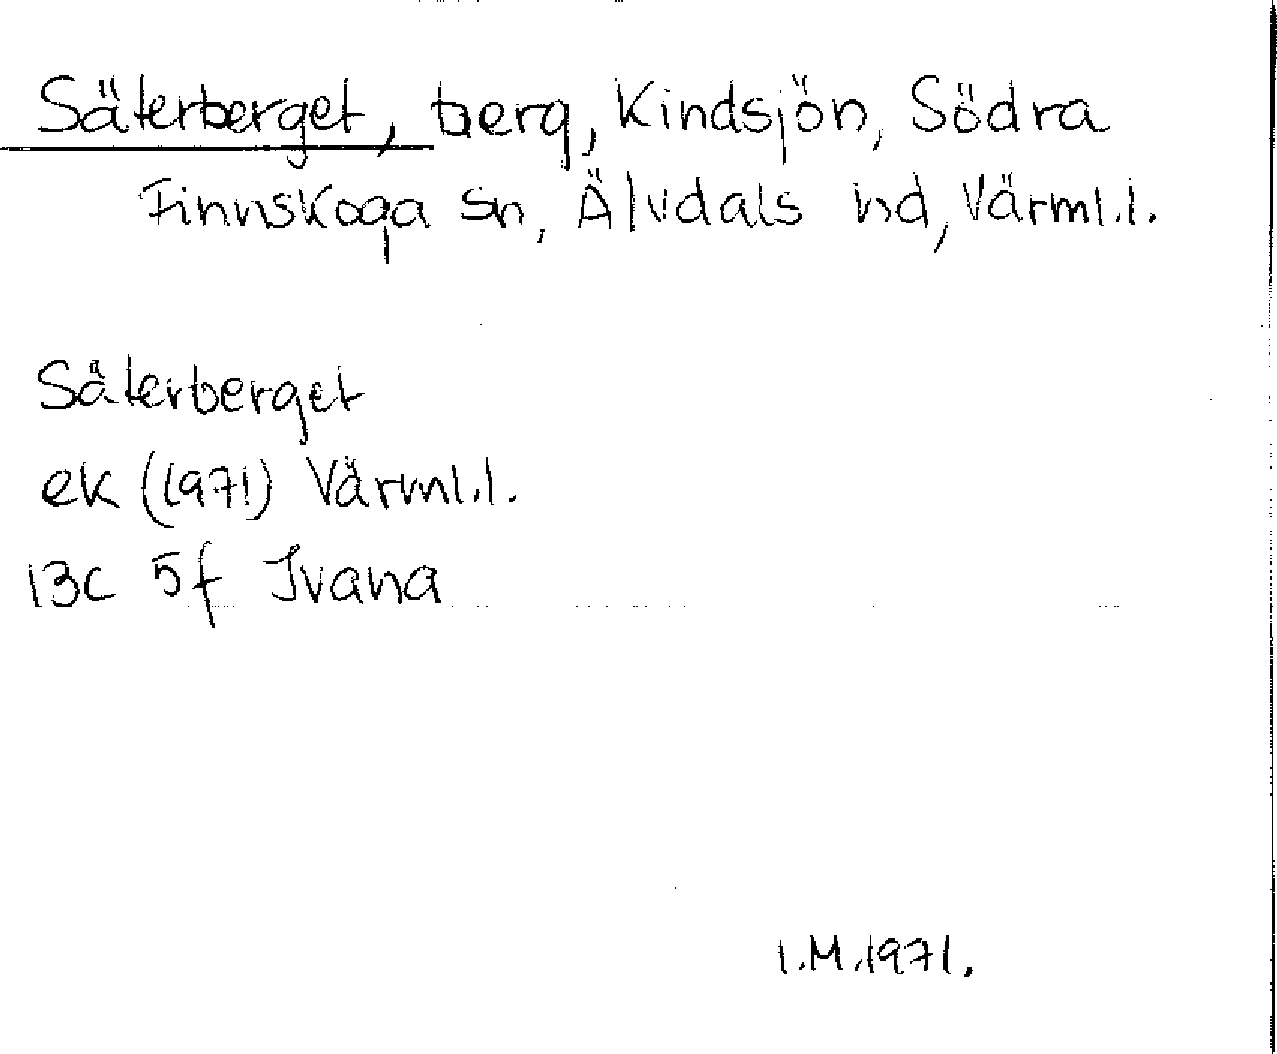 Säterberget, berg, Kindsjön, Södra
Finnskoga sn, Älvdals hd, Värml.l.
Säterberget
ek (1971) Värml.l.
13C 5f Ivana
I.M.1971.